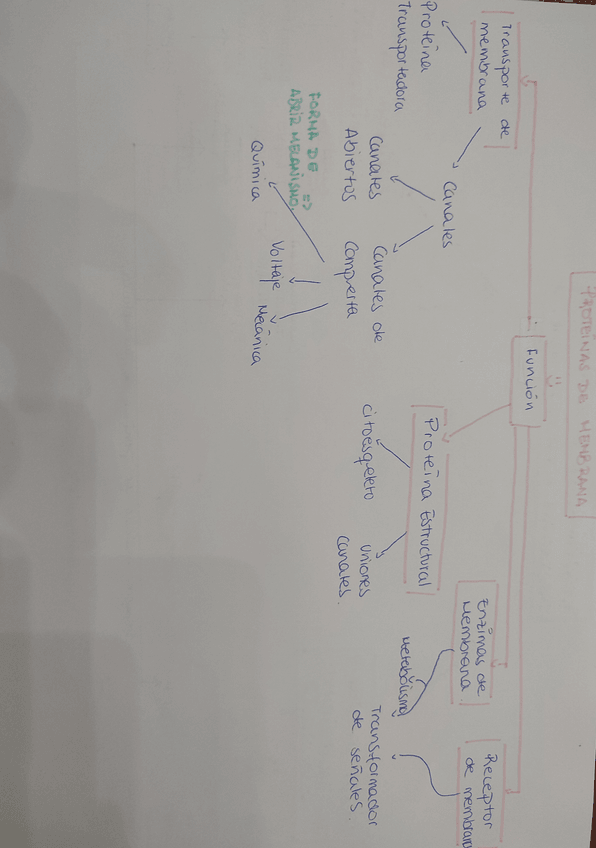 PROTEINAS DE MEMBRANA
Función
Transporte de
membrana
Proteína
Transportadora
Canales
Canales
Abiertos
Canales de
Compuerta
FORMA DE
ABRIR MECANISMO. =>
Química
Voltaje
Mecánica
Proteína Estructural
Citoesqueleto
Uniones
Canales.
Enzimas de
Membrana.
Metabolismo
Receptor
de membrana
Transformador
de señales.